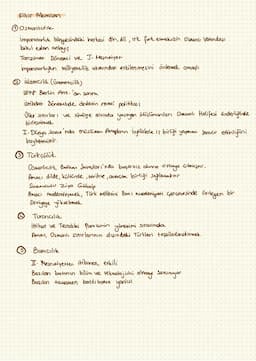 Fikir Akımları
① Osmanlıcılık
İmparatorluk bünyesindeki herkesi din, dil, ırk fark etmeksizin Osmanlı Vatandaşı
kabul eden anlayış
Tanzimat Dönemi ve I. Meşrutiyet
İmparatorluğun milliyetçilik akımından etkilenmesini önlemek amaçlı
② İslamcılık (Ümmetçilik)
1878 Berlin Ant.'dan sonra
Abdülhamit Döneminde devletin resmi politikası
Ülke sınırları ve dünyada yaşayan Müslümanları Osmanlı Halifesi liderliğinde
birleştirmek
I. Dünya Savaşı'nda Müslüman Arapların İngilizlerle iş birliği yapması sonucu etkinliğini
kaybetmiştir.
③ Türkçülük
Osmanlıcılık, Balkan Savaşları'nda başarısız olunca ortaya çıkmıştır.
Amaç dilde, kültürde, tarihte, amaçta birliği sağlamaktır
Savunucusu Ziya Gökalp
Amacı medeniyetçi, Türk milletini Batı medeniyeti çerçevesinde
seviyeye yükseltmek
④ Turancılık
İttihat ve Terakki Partisinin yönetimi sırasında
Amaç Osmanlı sınırlarının dışındaki Türkleri
⑤ Batıcılık
II. Meşrutiyetten itibaren etkili
Bazıları batının bilim ve teknolojisini almayı savunuyor
Bazıları tamamen batılılaşma yanlısı